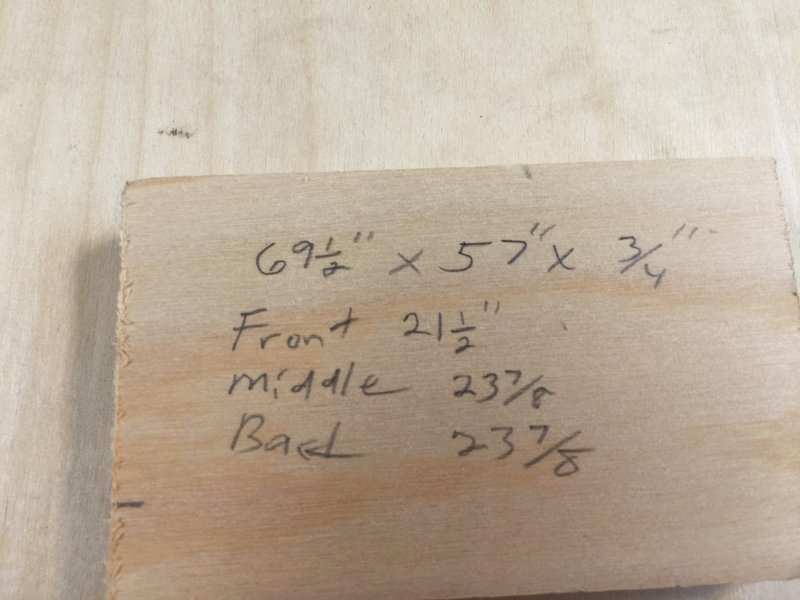 69 1/2" x 57" x 3/4"
Front 21 1/2"
middle 23 7/8
Back 23 7/8